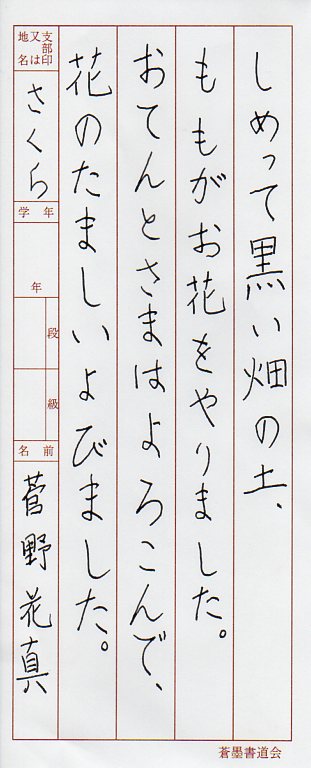 しめって黒い畑の土、
ももがお花をやりました。
おてんとさまはよろこんで、
花のたましいよびました。
支部印
又は
地名
さくら
学年
年
段
級
名前
菅野花真
蒼墨書道会